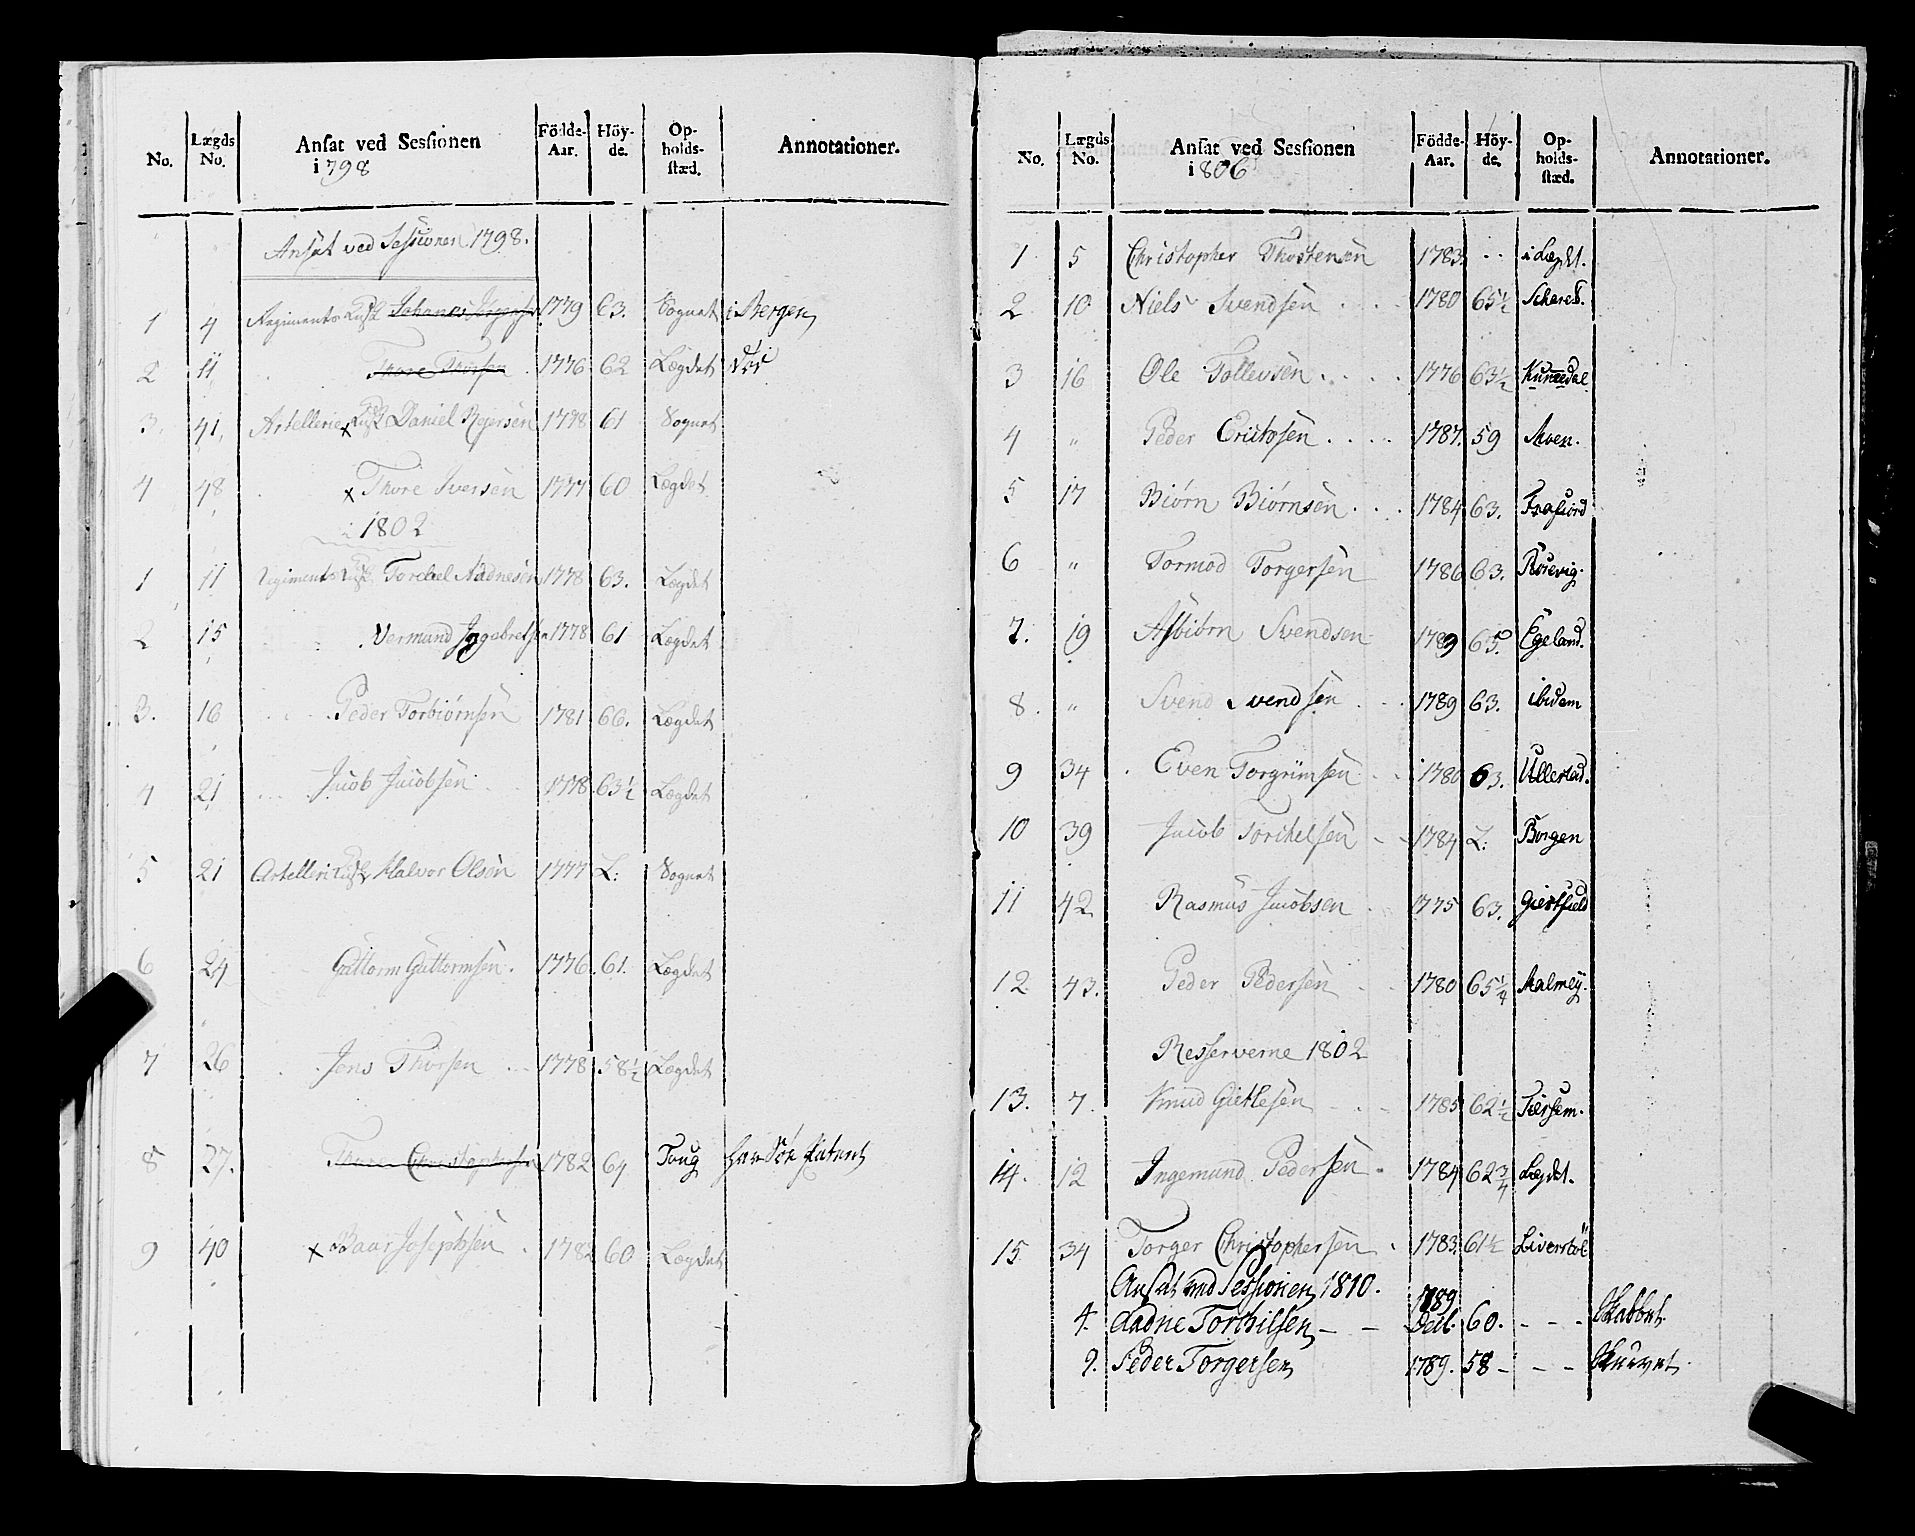 No. Lægds No. Ansat ved Sessionen i 1798 Födde-Aar. Höy-de. Op-holds-stæd. Annotationer.
Ansat ved Sessionen 1798.
1 4 Regiments Kusk Johannes Jörgensen 1779 63. Sognet i Bergen
2 11 Thore Thorsen 1776 62 Lægdet
3. 41. Artellerie x Kusk Daniel Rejersen 1778 61 Sognet
4 48 x Thore Iversen 1777 60 Lægdet
i 1802
1 11 Regiments Kusk Torchel Aadnesen 1778 63. Lægdet
2 15 Vermund Iggebretsen 1778 61 Lægdet
3. 16 Peder Torbiørnsen 1781 66. Lægdet
4 21 Jacob Jacobsen 1778 63½ Lægdet
5 21 Artelleri Kusk Halvor Olsen 1777 L: Sognet
6 24 Guttorm Guttormsen. 1776 61. Lægdet
7 26 Jens Thorsen 1778 58½ Lægdet
8 27. Thore Christophersen 1782 64 Toug har Söe Patent
9 40 x Baar Josephsen 1782 60 Lægdet
No. Lægds No. Ansat ved Sessionen i 806 Födde-Aar. Höy-de. Op-holds-stæd. Annotationer.
1 5 Christopher Thostensen 1783. i Lægdt.
2 10 Niels Svendsen 1780 65½
3 16 Ole Tollevsen 1776 63½ Kunnedal
4 " Peder Erichsen 1787. 59 Moen.
5 17 Biørn Biørnsen 1784 63. Frafiord
6 " Tormod Torgersen 1786 63. Rörevig.
7. 19 Asbiörn Svendsen 1789 65. Egeland.
8. " Svend Svendsen 1789 63. ibidem
9 34 Even Torgrimsen 1780 63. Ullestad.
10 39 Jacob Torchelsen 1784 L: Borgen
11 42 Rasmus Jacobsen 1775 63. Giestfield
12 43. Peder Pedersen 1780 65¼ Malmey.
Resserverne 1802
13. 7. Knud Gietlesen 1785 62½ Tiersem.
14. 12 Ingemund Pedersen 1784 62¾ Lægdet.
15 34 Torger Christophersen 1783. 61½ Liverstöl
Ansat ved Sessionen 1810.
4. Aadne Torchilsen 1789 60. Skabbet
9. Peder Torgersen 1789. 58 Skurvet